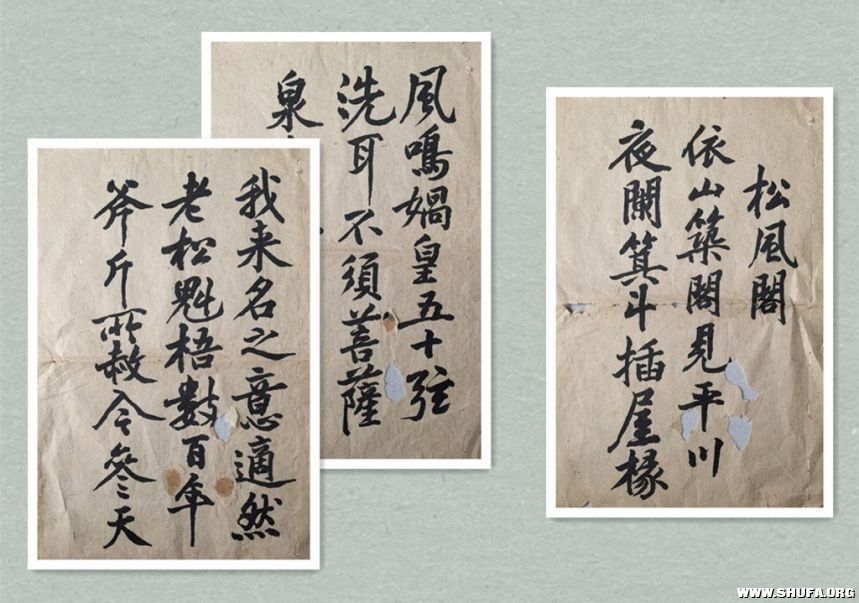 松風閣
依山築閣見平川
夜闌箕斗插屋椽
我来名之意適然
老松魁梧數百年
斧斤所赦今參天
風鳴媧皇五十弦
洗耳不須菩薩
泉
WWW.SHUFA.ORG